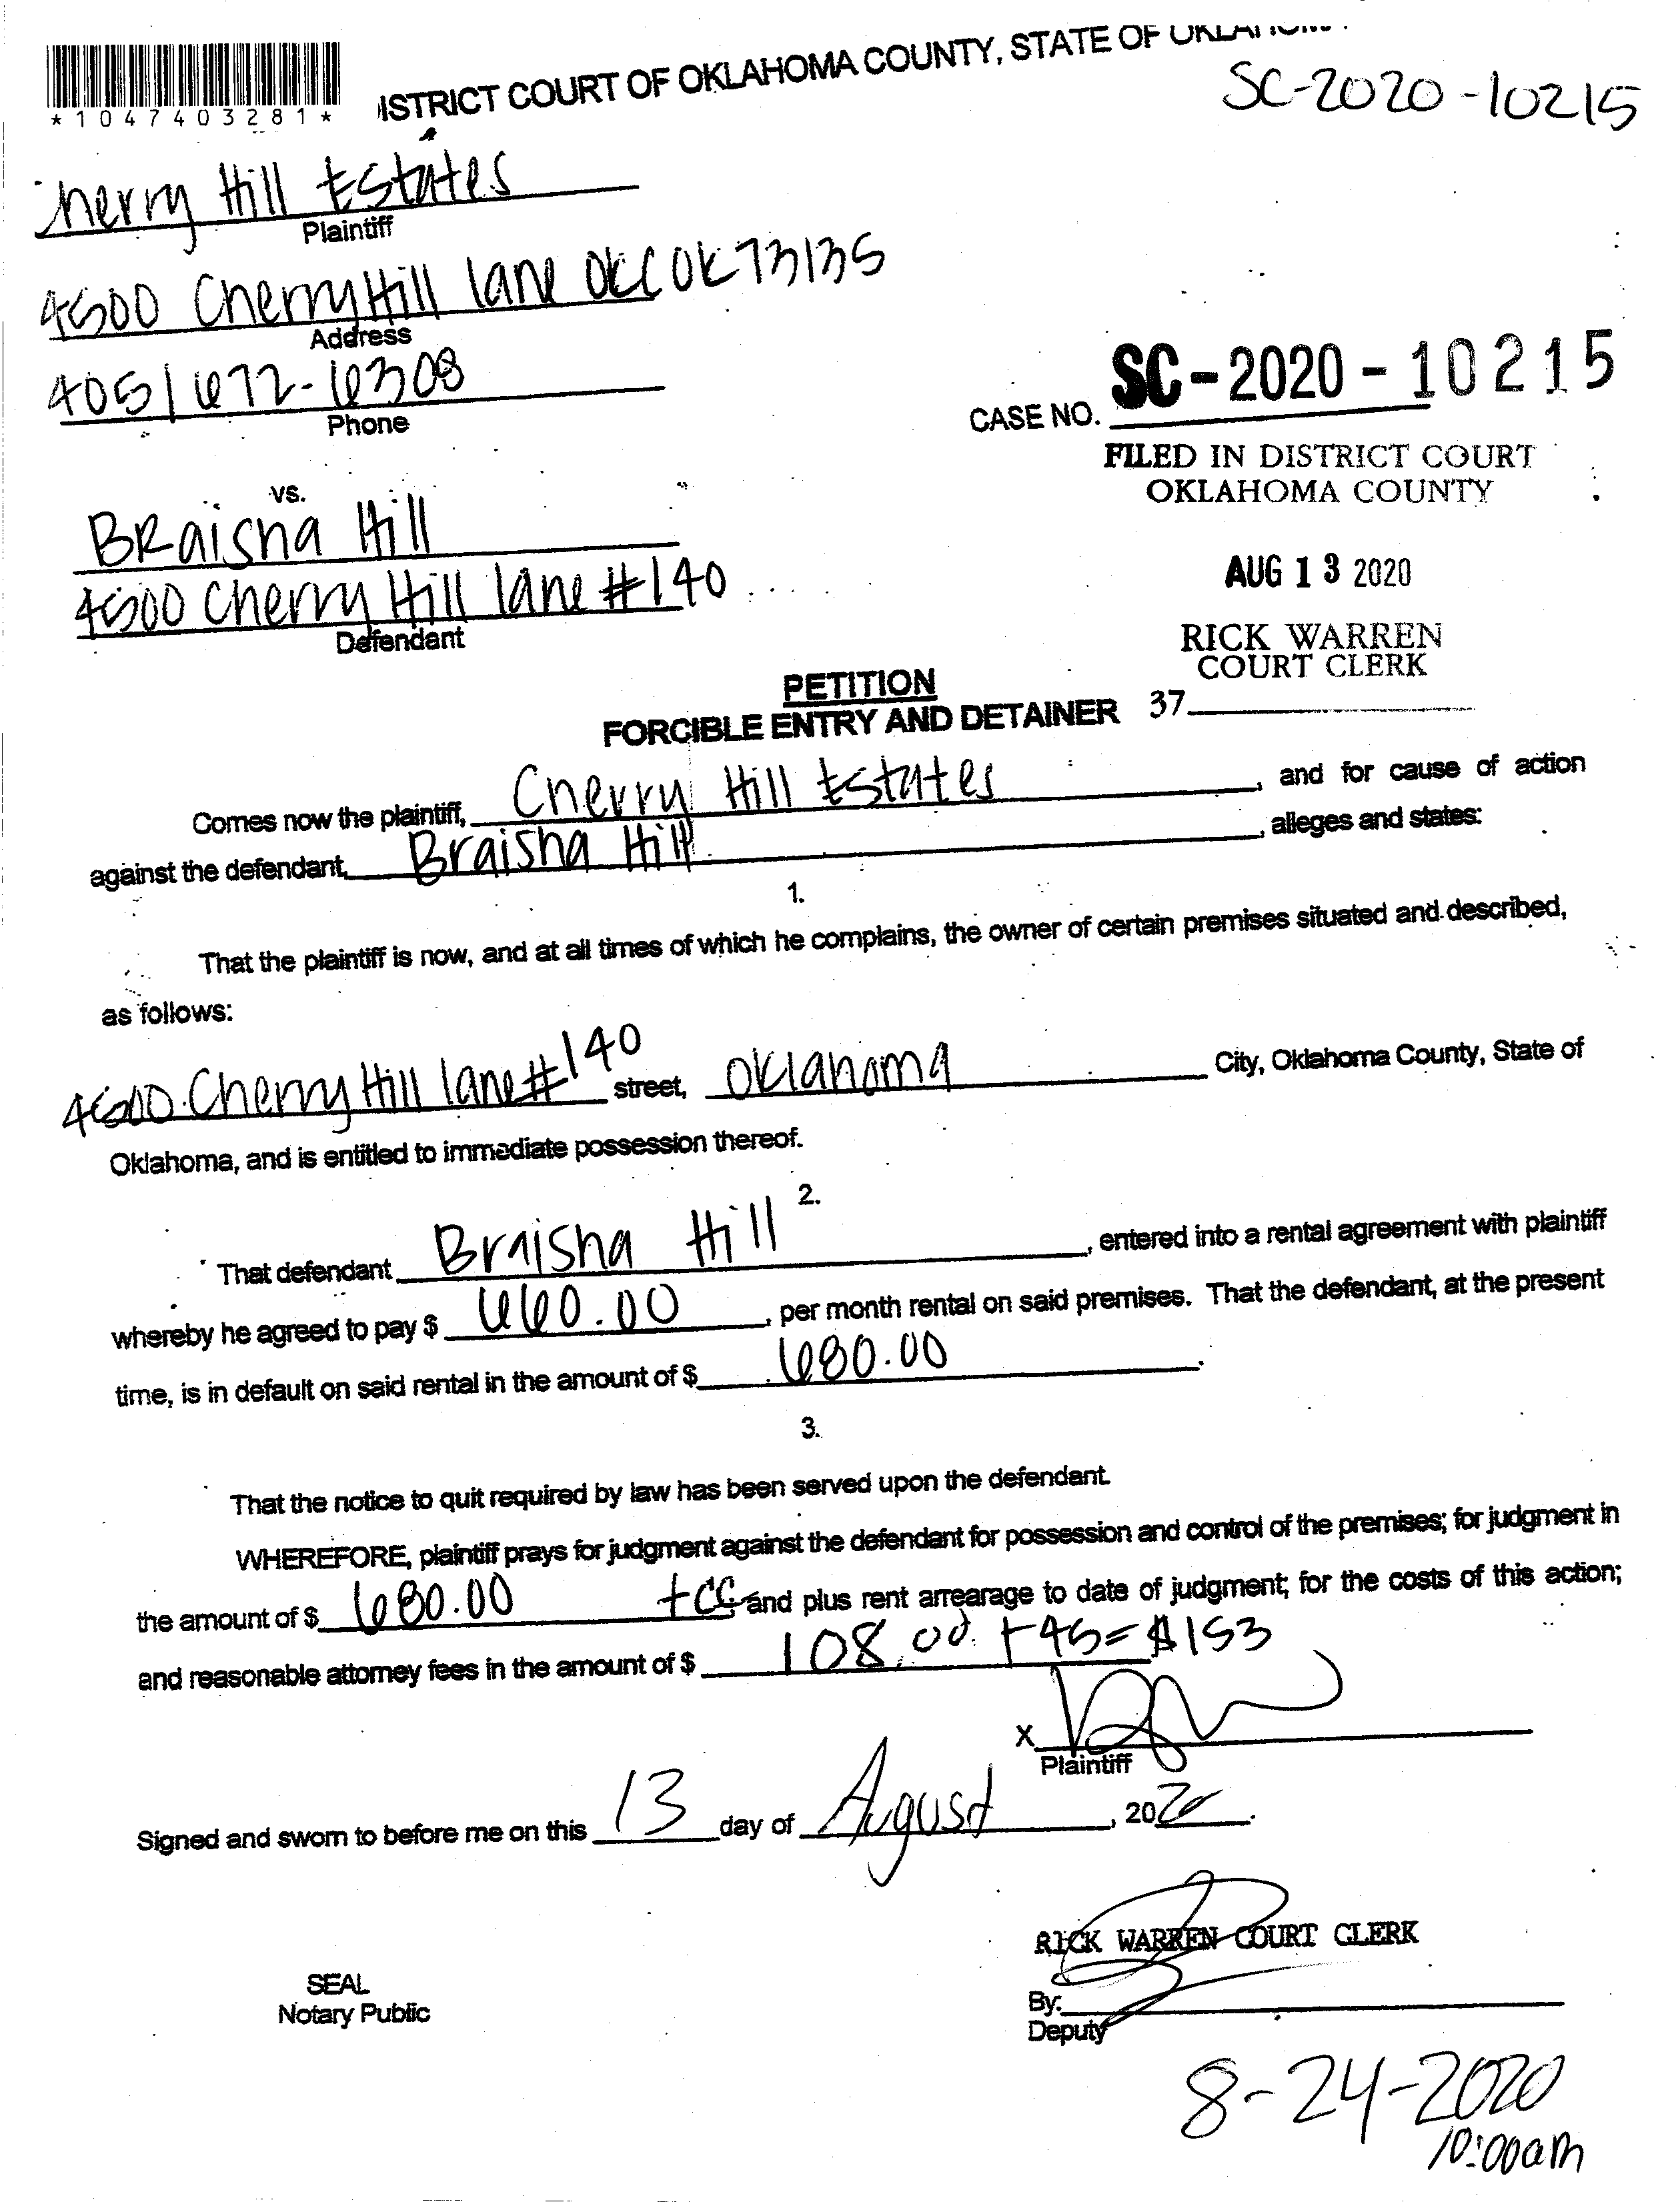 *1047403281*
ISTRICT COURT OF OKLAHOMA COUNTY, STATE OF
SC-2020-10215
Cherry Hill Estates
Plaintiff
4500 Cherry Hill lane OKC OK 73135
Address
405/672-6308
Phone
CASE NO. SC-2020-10215
FILED IN DISTRICT COURT
OKLAHOMA COUNTY
vs.
BRaisha Hill
AUG 13 2020
4500 Cherry Hill lane #140
Defendant
RICK WARREN
COURT CLERK
PETITION
FORCIBLE ENTRY AND DETAINER
37
Comes now the plaintiff, Cherry Hill Estates, and for cause of action
against the defendant, Braisha Hill, alleges and states:
1.
That the plaintiff is now, and at all times of which he complains, the owner of certain premises situated and described,
as follows:
4500 Cherry Hill lane #140 street, Oklahoma City, Oklahoma County, State of
Oklahoma, and is entitled to immediate possession thereof.
2.
That defendant Braisha Hill, entered into a rental agreement with plaintiff
whereby he agreed to pay $ 660.00, per month rental on said premises. That the defendant, at the present
time, is in default on said rental in the amount of $ 680.00.
3.
That the notice to quit required by law has been served upon the defendant.
WHEREFORE, plaintiff prays for judgment against the defendant for possession and control of the premises; for judgment in
the amount of $ 680.00 +CC, and plus rent arrearage to date of judgment; for the costs of this action;
and reasonable attorney fees in the amount of $ 108.00 +45=$153
X
Plaintiff
Signed and sworn to before me on this 13 day of August, 2020.
RICK WARREN COURT CLERK
SEAL
Notary Public
By:
Deputy
8-24-2020
10:00am